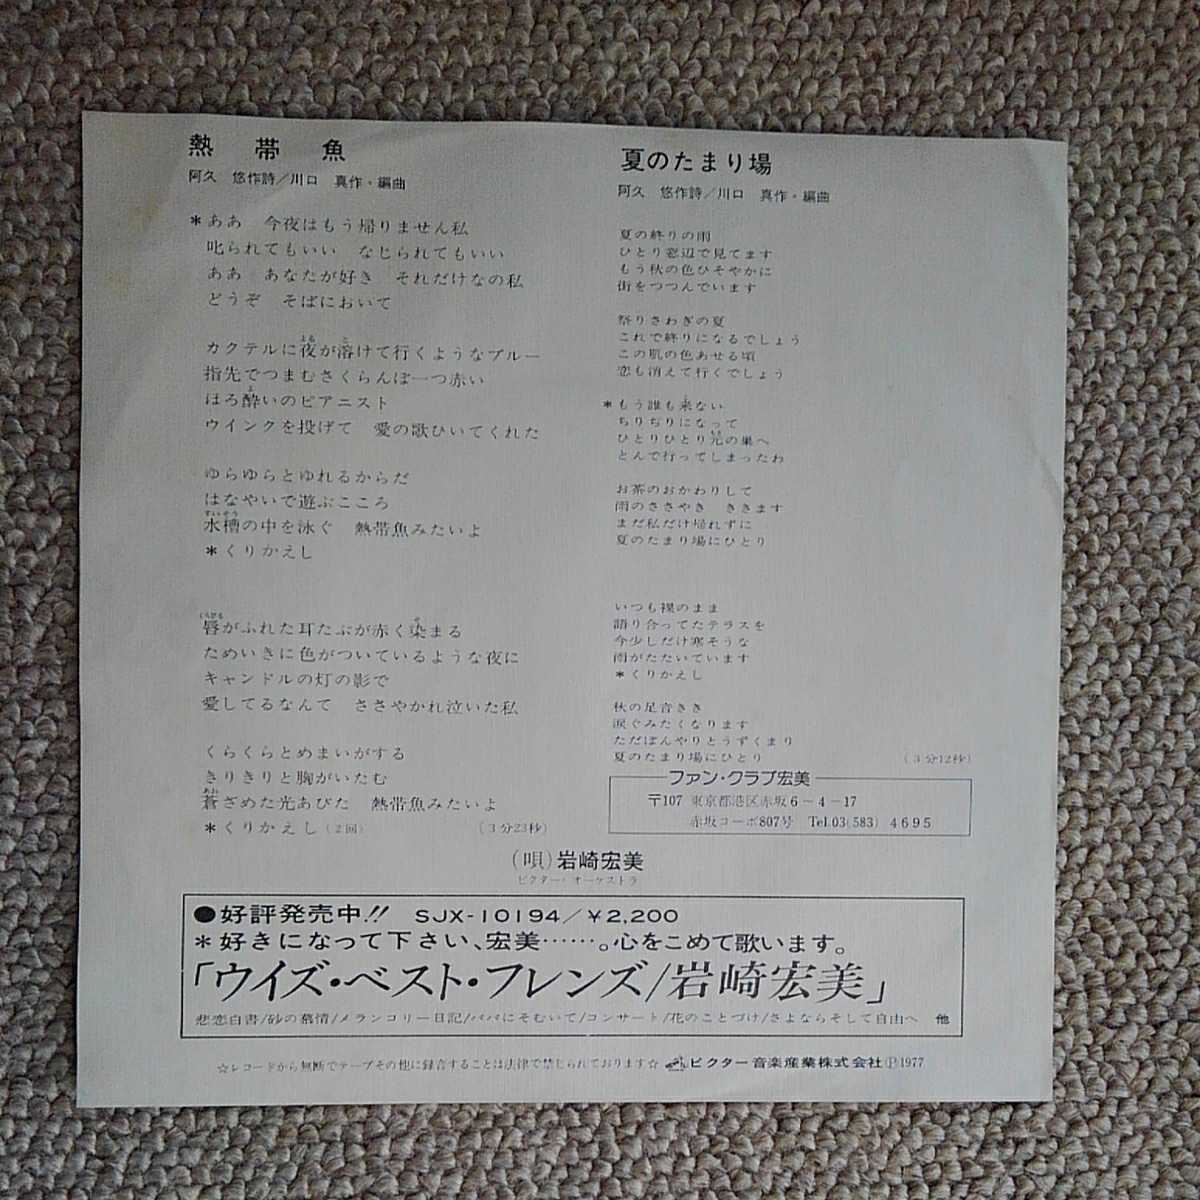 熱帯魚
阿久 悠作詩／川口 真作・編曲
＊ああ 今夜はもう帰りません私
叱られてもいい なじられてもいい
ああ あなたが好き それだけなの私
どうぞ そばにおいて
カクテルに夜が溶けて行くようなブルー
指先でつまむさくらんぼ一つ赤い
ほろ酔いのピアニスト
ウインクを投げて 愛の歌ひいてくれた
ゆらゆらとゆれるからだ
はなやいで遊ぶこころ
水槽の中を泳ぐ 熱帯魚みたいよ
＊くりかえし
唇がふれた耳たぶが赤く染まる
ためいきに色がついているような夜に
キャンドルの灯の影で
愛してるなんて ささやかれ泣いた私
くらくらとめまいがする
きりきりと胸がいたむ
蒼ざめた光あびた 熱帯魚みたいよ
＊くりかえし（2回） （3分23秒）
夏のたまり場
阿久 悠作詩／川口 真作・編曲
夏の終りの雨
ひとり窓辺で見てます
もう秋の色ひそやかに
街をつつんでいます
祭りさわぎの夏
これで終りになるでしょう
この肌の色あせる頃
恋も消えて行くでしょう
＊もう誰も来ない
ちりぢりになって
ひとりひとり元の巣へ
とんで行ってしまったわ
お茶のおかわりして
雨のささやき ききます
まだ私だけ帰れずに
夏のたまり場にひとり
いつも裸のまま
語り合ってたテラスを
今少しだけ寒そうな
雨がたたいています
＊くりかえし
秋の足音きき
涙ぐみたくなります
ただぼんやりとうずくまり
夏のたまり場にひとり （3分12秒）
ファン・クラブ宏美
〒107 東京都港区赤坂6－4－17
赤坂コーポ807号 Tel.03(583)4695
（唄）岩崎宏美
ビクター・オーケストラ
●好評発売中!! SJX-10194／￥2,200
＊好きになって下さい、宏美……。心をこめて歌います。
「ウイズ・ベスト・フレンズ/岩崎宏美」
悲恋白書/砂の慕情/メランコリー日記/パパにそむいて/コンサート/花のことづけ/さよならそして自由へ 他
☆レコードから無断でテープその他に録音することは法律で禁じられております☆ ビクター音楽産業株式会社Ⓟ1977